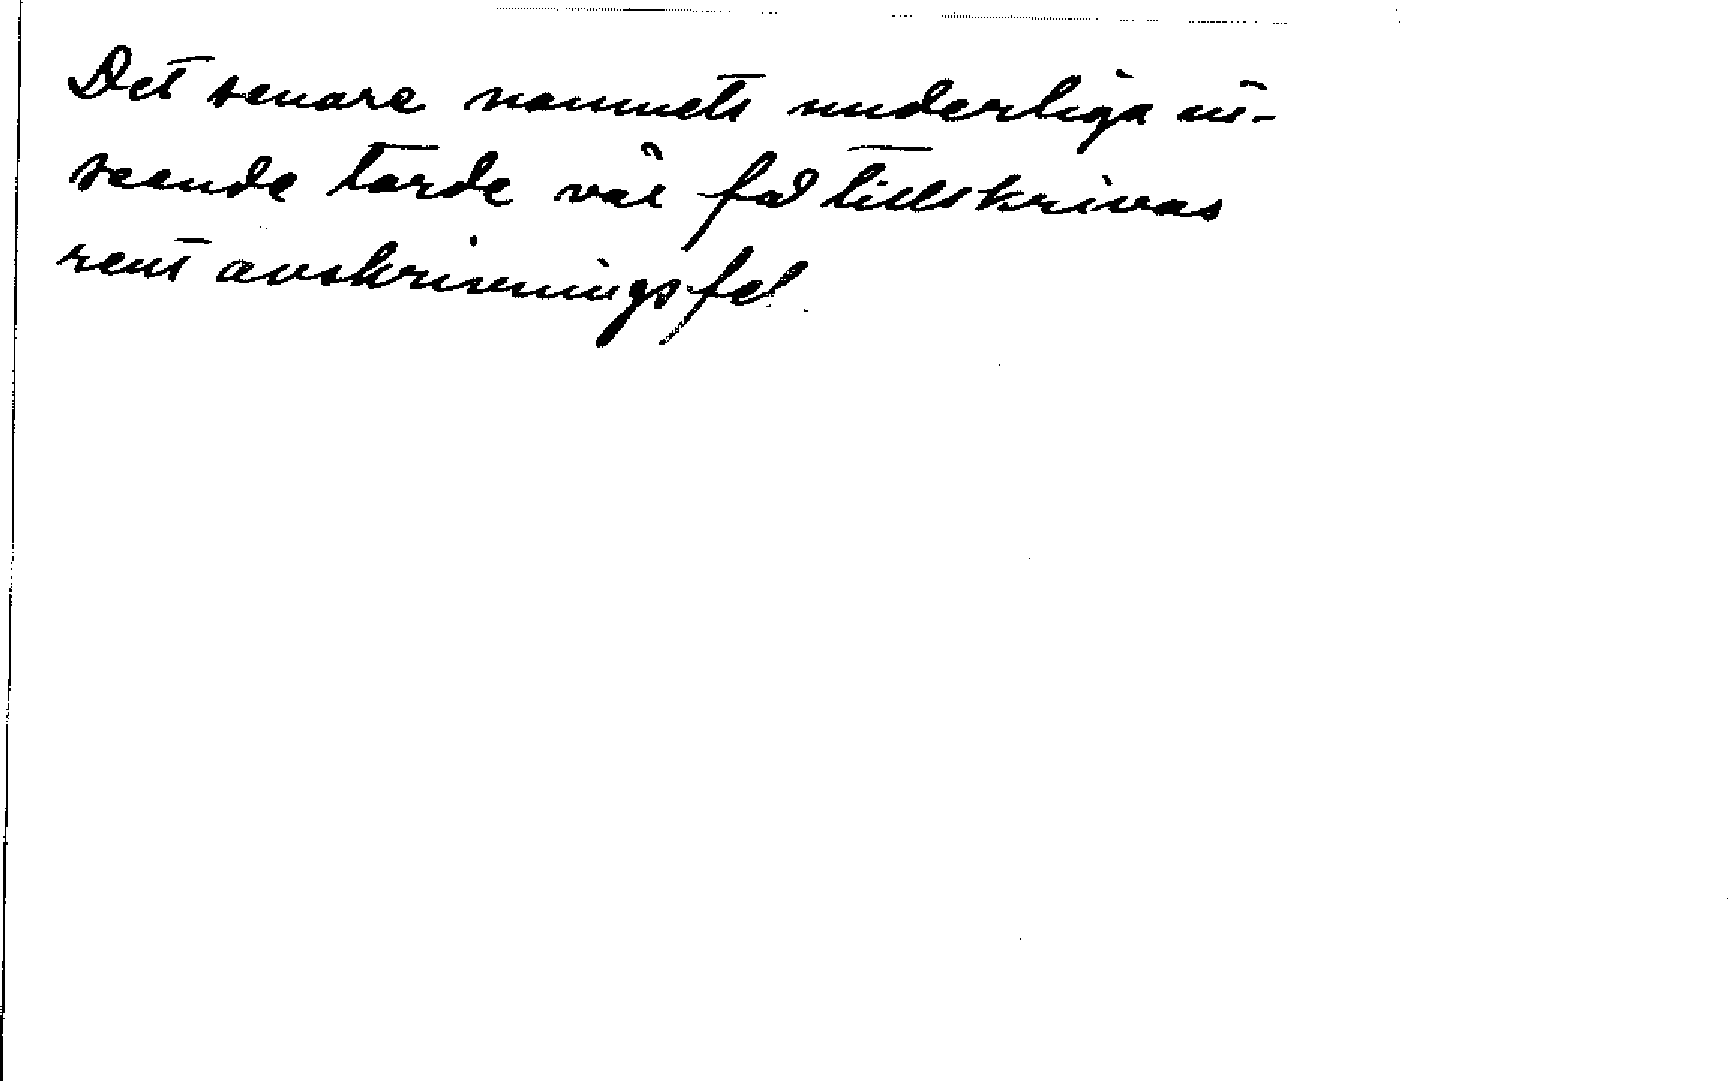 Det senare namnets underliga ut-
seende torde väl få tillskrivas
rent avskrivningsfel.